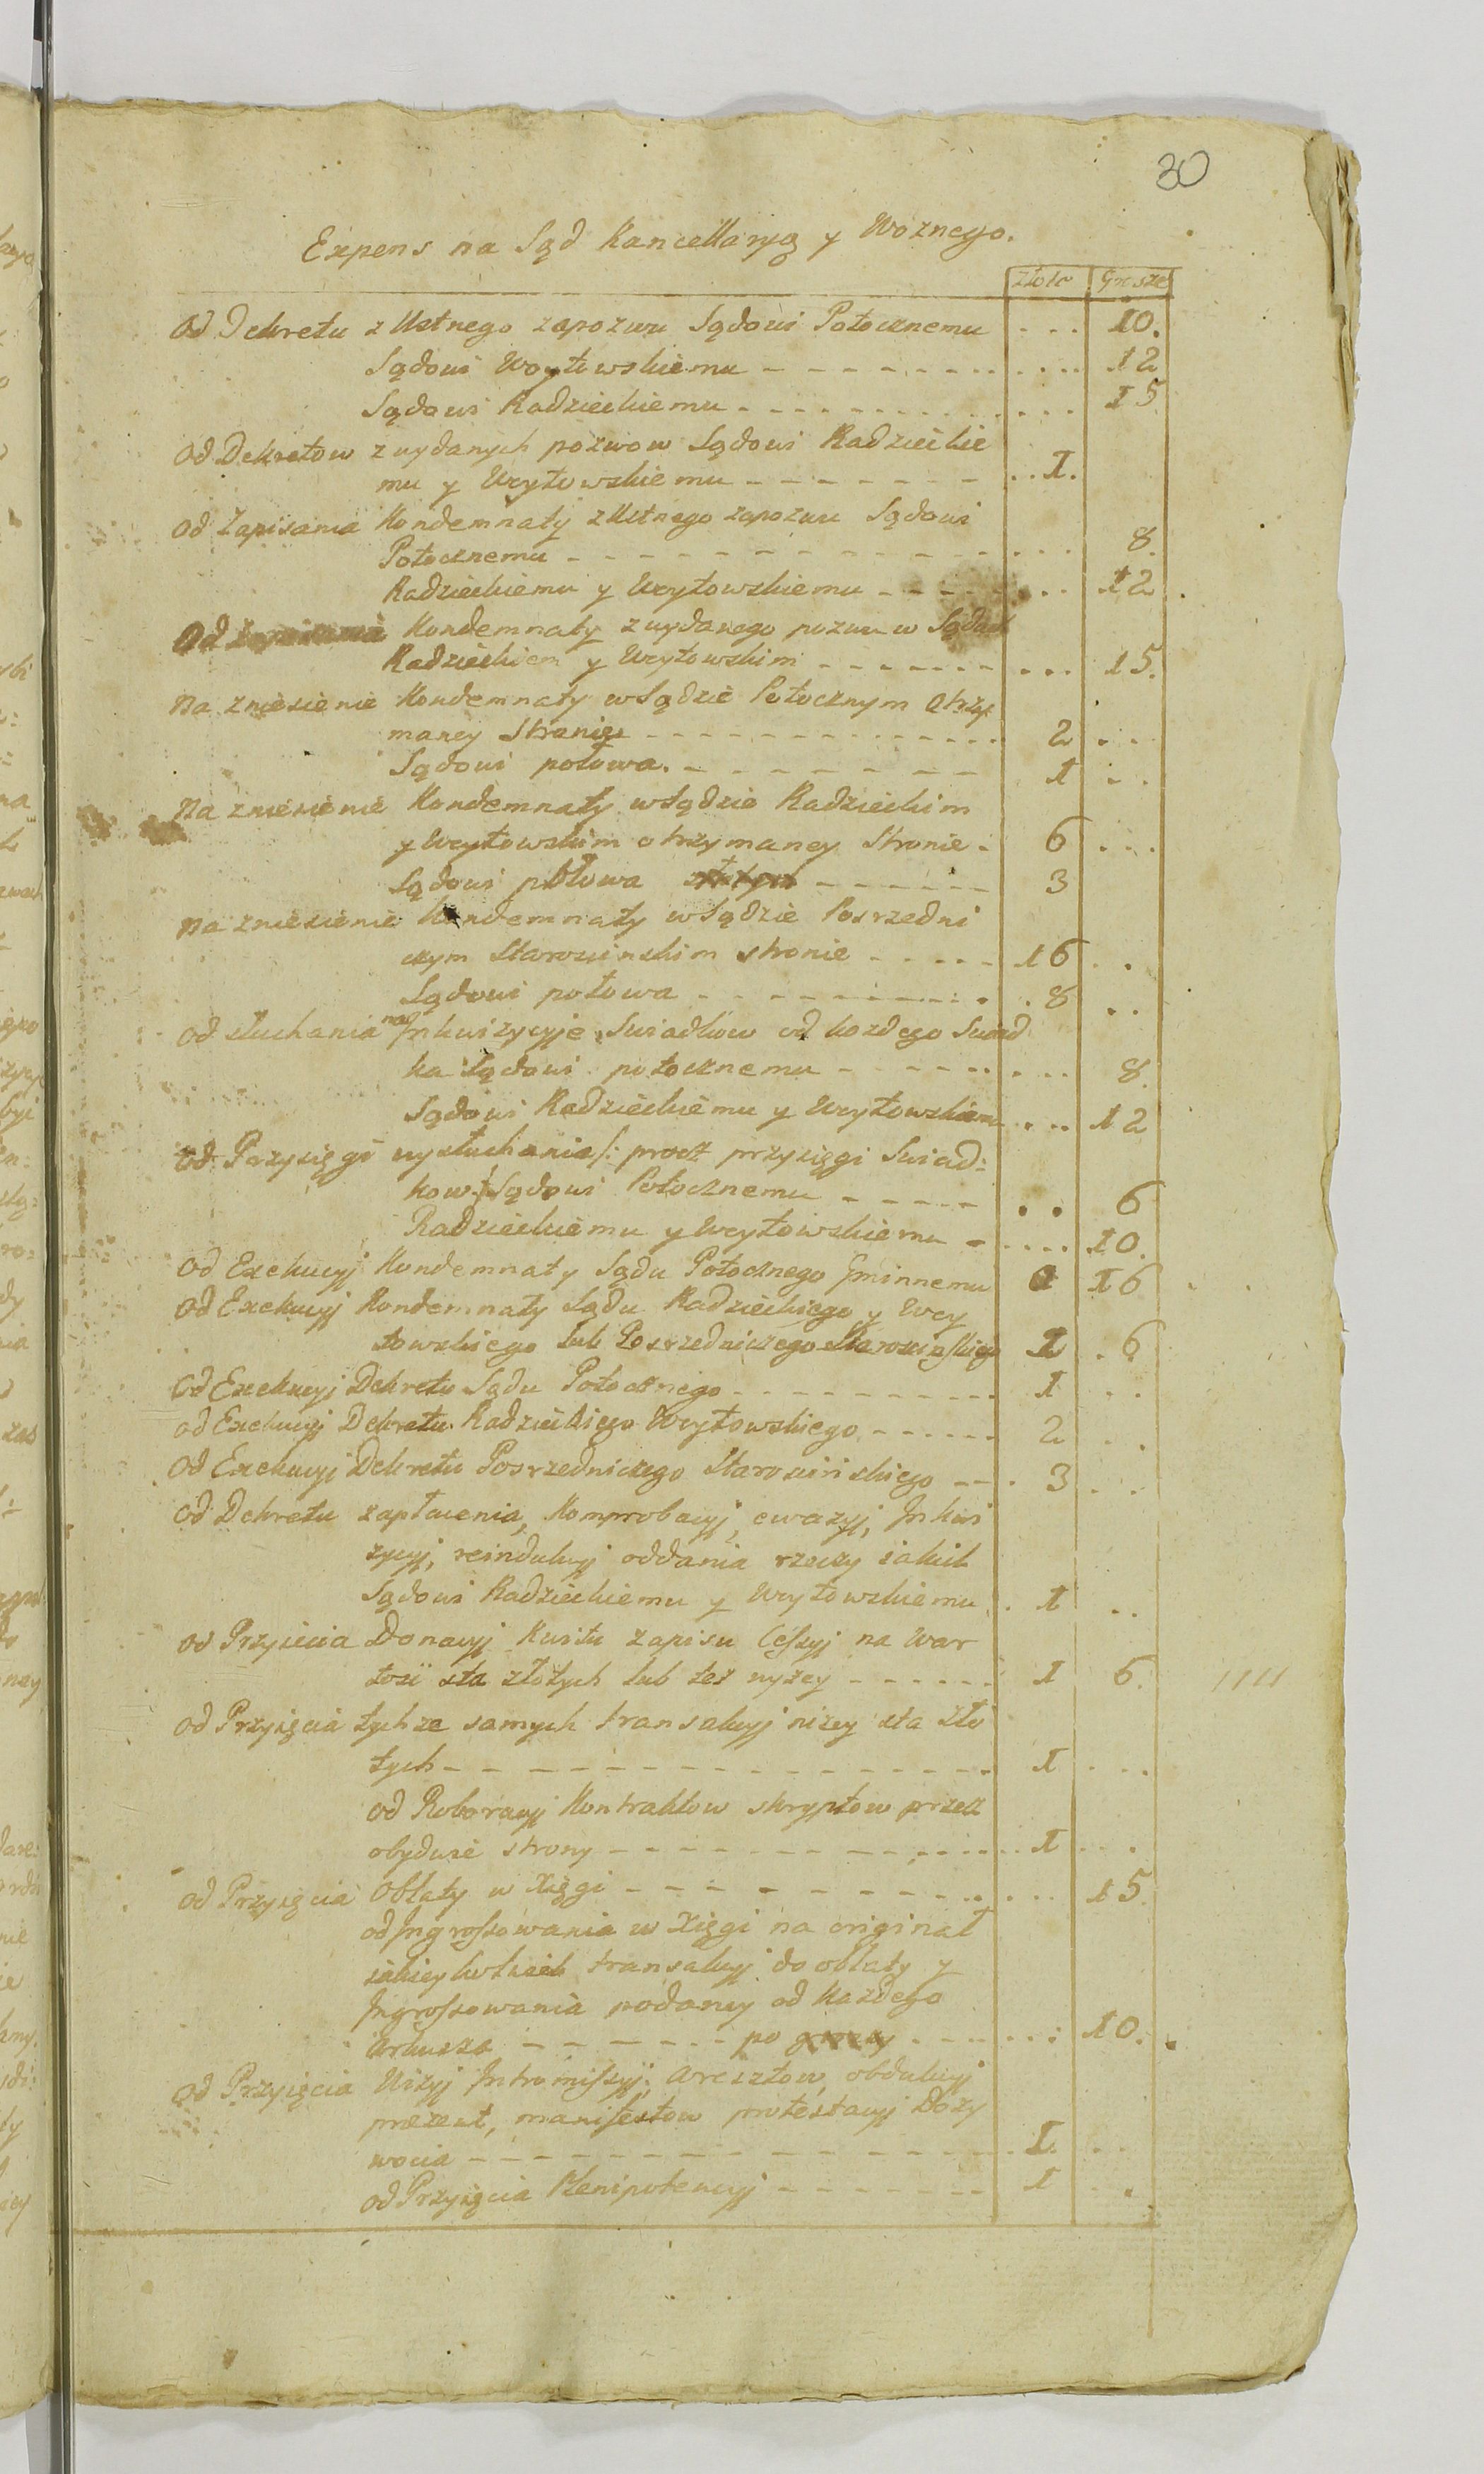 30
Expens na Sąd Kancellaryą y Woznego.
Złote Grosze
Od Dekretu z Ustnego zapozwu Sądowi Potocznemu . . . 10.
Sądowi Woytowskiemu - - - - - - . . . 12
Sądowi Radzieckiemu - - - - - - . . . 15
Od Dekretow z wydanych pozwow Sądowi Radzieckie
mu y Woytowskiemu - - - - - - . . 1.
Od Zapisania Kondemnaty z Ustnego zapozwu Sądowi
Potocznemu - - - - - - . . . 8.
Radzieckiemu y Woytowskiemu - - - - . . 12.
Od Kondemnaty z wydanego pozwu w Sądach
Radzieckiem y Woytowskim - - - - - - . . . 15.
Na zniesienie Kondemnaty w Sądzie Potocznym Otrzy
maney Stronie - - - - - - 2 . . .
Sądowi połowa. - - - - - - 1 . . .
Na zniesienie Kondemnaty w Sądzie Radzieckim
y Woytowskim otrzymaney Stronie - 6 . . .
Sądowi połowa - - - - - - 3
Na zniesienie Kondemnaty w Sądzie Posrzedni
czym Staroscinskim stronie - - - - - 16 . .
Sądowi połowa - - - - - - . 8 . .
Od słuchania na Inkwizycyje Swiadkow od kozdego Swiad
ka Sądowi potocznemu - - - - - . . . 8.
Sądowi Radzieckiemu y Woytowskiem . . . 12
Od Przysięgi wysłuchania /: procz przysięgi Swiad:
kow :/ Sądowi Potocznemu - - - - - . . 6
Radzieckiemu y Woytowskiemu - . . . . 10.
Od Exekucyj Kondemnaty Sądu Potocznego Gminnemu 16
Od Exekucyj Kondemnaty Sądu Radzieckiego y Woy
towskiego lub Posrzedniczego Staroscinskiego 1 . 6.
Od Exekucyj Dekretu Sądu Potocznego - - - - - - 1 . .
od Exekucyj Dekretu Radzieckiego Woytowskiego - - - - - - 2 . .
Od Exekucyj Dekretu Posrzedniczego Staroscinskiego - - . 3 . . .
Od Dekretu zapłacenia, Komprobacyj, ewazyj, Inkwi
zycyj, reindukcyj oddania rzeczy iakich
Sądowi Radzieckiemu y Woytowskiemu . 1 . .
od Przyięcia Donacyj Kwitu zapisu Cessyj na War
tosć sta złotych lub też wyzey - - - - - - 1 6.
od Przyięcia tychze samych transakcyj nizey sta zło
tych - - - - - - 1 . . .
od Roboracyj Kontraktow skryptow przez
obydwie strony - - - - - - . 1 . . .
od Przyięcia Oblaty w Xięgi - - - - - - . . . 15
od Ingrossowania w Xięgi na originał
iakieykolwiek transakcyj do oblaty y
Ingrossowania podaney od Każdego
Arkusza - - - - - - po - - - . . . 10.
od Przyięcia Wizyj Intromissyj, aresztow, obdukcyj
prezent, manifestow protestacyj Dozy
wocia - - - - - - . 1. . .
od Przyięcia Plenipotencyj - - - - - - 1 . .